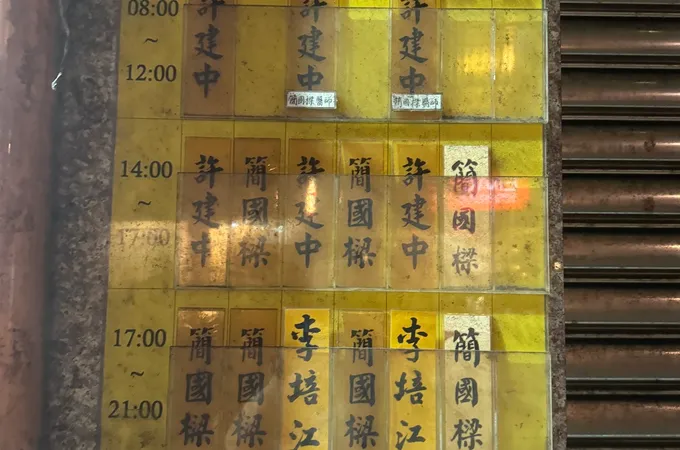 08:00 許建中 許建中 許建中
~
12:00
簡國樑醫師 簡國樑醫師
14:00 許建中 簡國樑 許建中 簡國樑 許建中 簡國樑
~
17:00
17:00 簡國樑 簡國樑 李培江 簡國樑 李培江 簡國樑
~
21:00